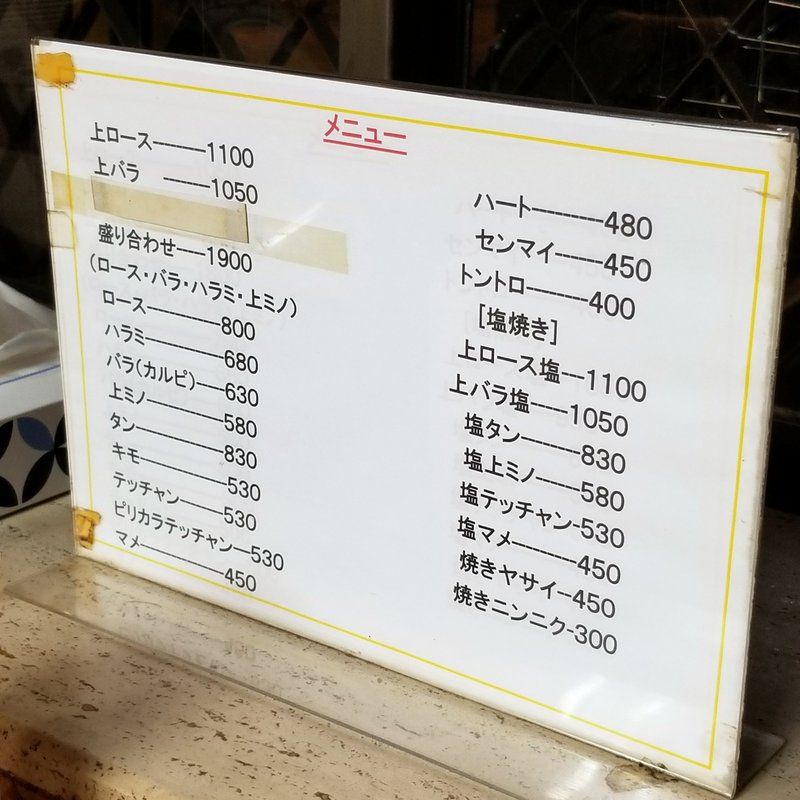 メニュー
上ロース-----1100
上バラ ----1050
盛り合わせ---1900
(ロース・バラ・ハラミ・上ミノ)
ロース-------800
ハラミ-------680
バラ(カルビ)---630
上ミノ-------580
タン--------830
キモ--------530
テッチャン-----530
ピリカラテッチャン--530
マメ--------450
ハート------480
センマイ----450
トントロ-----400
[塩焼き]
上ロース塩--1100
上バラ塩---1050
塩タン-----830
塩上ミノ----580
塩テッチャン-530
塩マメ-----450
焼きヤサイ-450
焼きニンニク-300